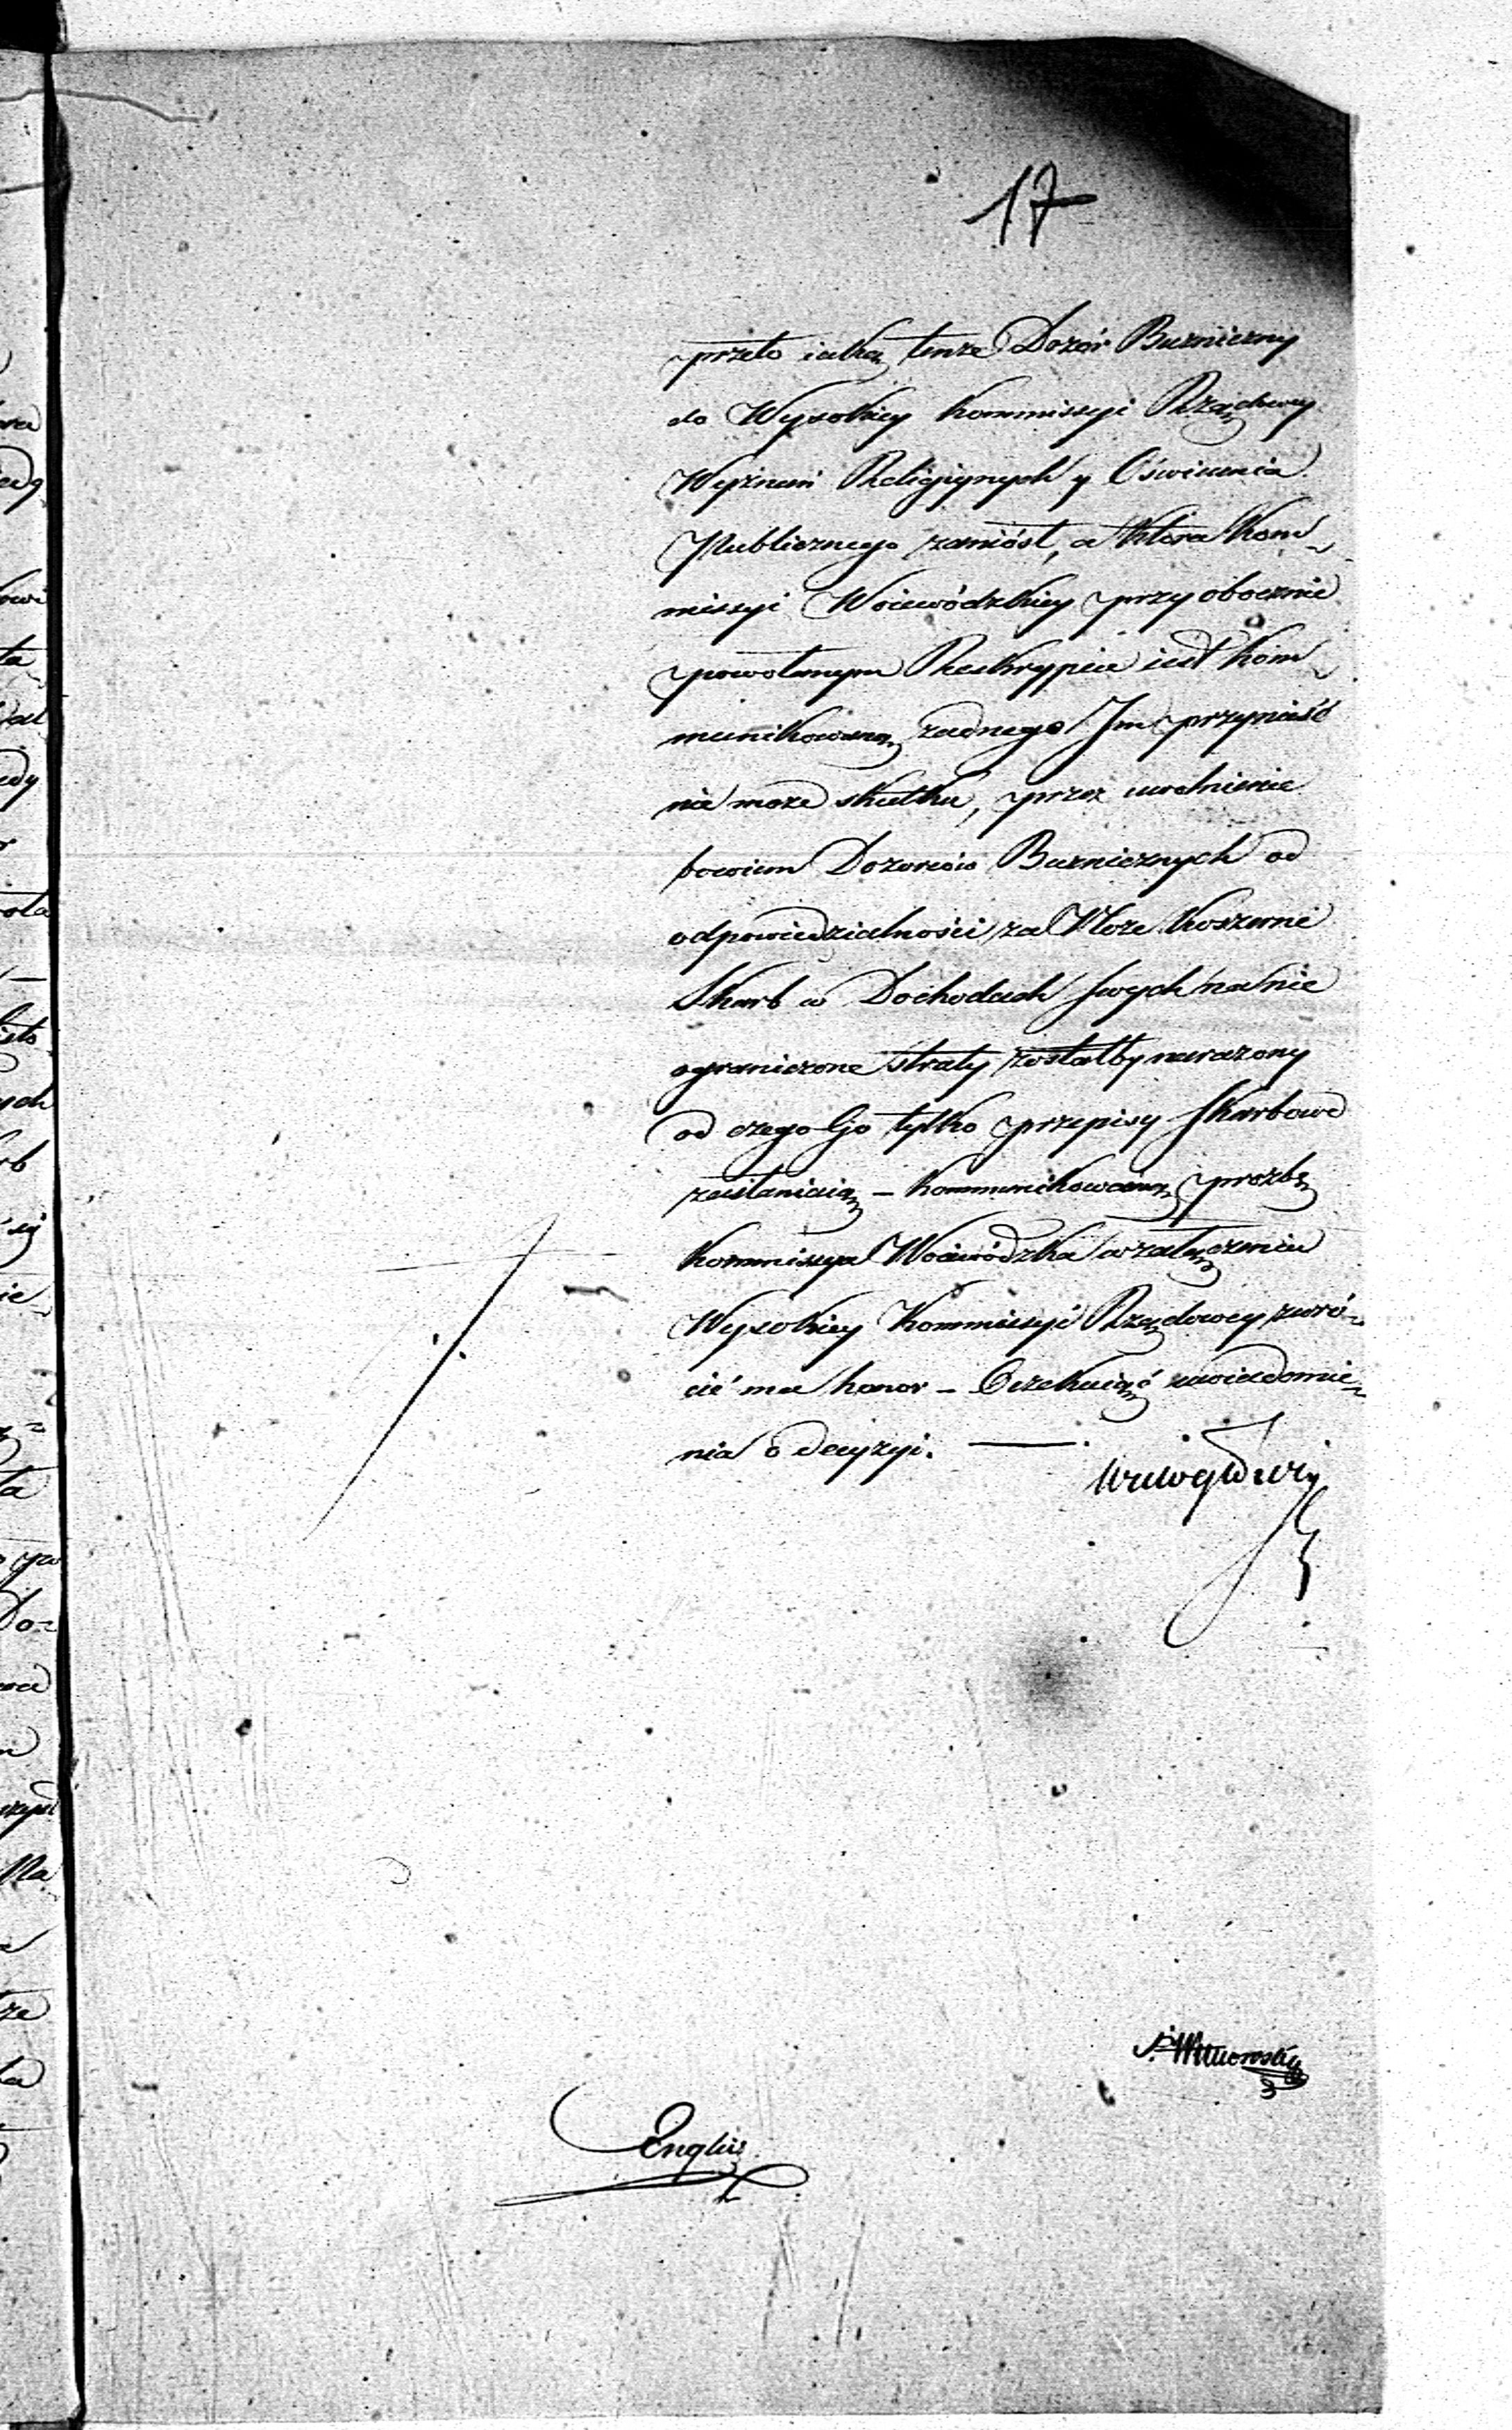 17
przeto iaką tenże Dozór Bużniczny
do Wysokiey Kommissyi Rządowey
Wyznań Religijnych y Oświecenia
Publicznego zaniósł, a która Kom-
missyi Woiewódzkiey przy obocznie
powołanym Reskrypcie iest kom-
munikowaną żadnego Im przynieść
nie może skutku, przez uwolnienie
bowiem Dozorców Bużnicznych od
odpowiedzialności za Kloze koszerne
Skarb w Dochodach swych na nie
ograniczone straty zostałby narażony
od czego Go tylko przepisy Skarbowe
zasłaniaią – Kommunikowaną prozbę
Kommissya Woiewódzka w załączeniu
Wysokiey Kommissyi Rządowey zwró-
cić ma honor – Oczekuiąć uwiadomie-
nia o decyzyi. —
Englis